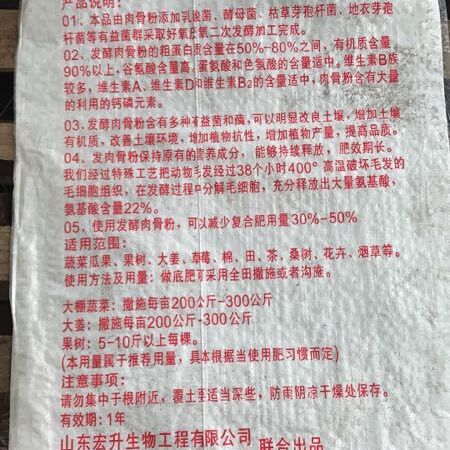 产品说明：
01、本品由肉骨粉添加乳酸菌、酵母菌、枯草芽孢杆菌、地衣芽孢
杆菌等有益菌群采取好氧厌氧二次发酵加工完成。
02、发酵肉骨粉的粗蛋白质含量在50%-80%之间，有机质含量
90%以上，谷氨酸含量高，蛋氨酸和色氨酸的含量适中。维生素B族
较多，维生素A、维生素D和维生素B₂的含量适中，肉骨粉含有大量
的利用的钙磷元素。
03、发酵肉骨粉含有多种有益菌和酶，可以明显改良土壤，增加土壤
有机质，改善土壤环境，增加植物抗性，增加植物产量，提高品质。
04、发肉骨粉保持原有的营养成分， 能够持续释放，肥效期长。
我们经过特殊工艺把动物毛发经过38个小时400°高温破坏毛发的
毛细胞组织，在发酵过程中分解毛细胞，充分释放出大量氨基酸，
氨基酸含量22%。
05、使用发酵肉骨粉，可以减少复合肥用量30%-50%
适用范围：
蔬菜瓜果、果树、大姜、草莓、棉、田、茶、桑树、花卉、烟草等。
使用方法及用量：做底肥可采用全田撒施或者沟施。
大棚蔬菜：撒施每亩200公斤-300公斤
大姜：撒施每亩200公斤-300公斤
果树：5-10斤以上每棵。
(本用量属于推荐用量，具体根据当使用肥习惯而定)
注意事项：
请勿集中于根附近，覆土要适当深些，防雨阴凉干燥处保存。
有效期：1年
山东宏升生物工程有限公司 联合出品